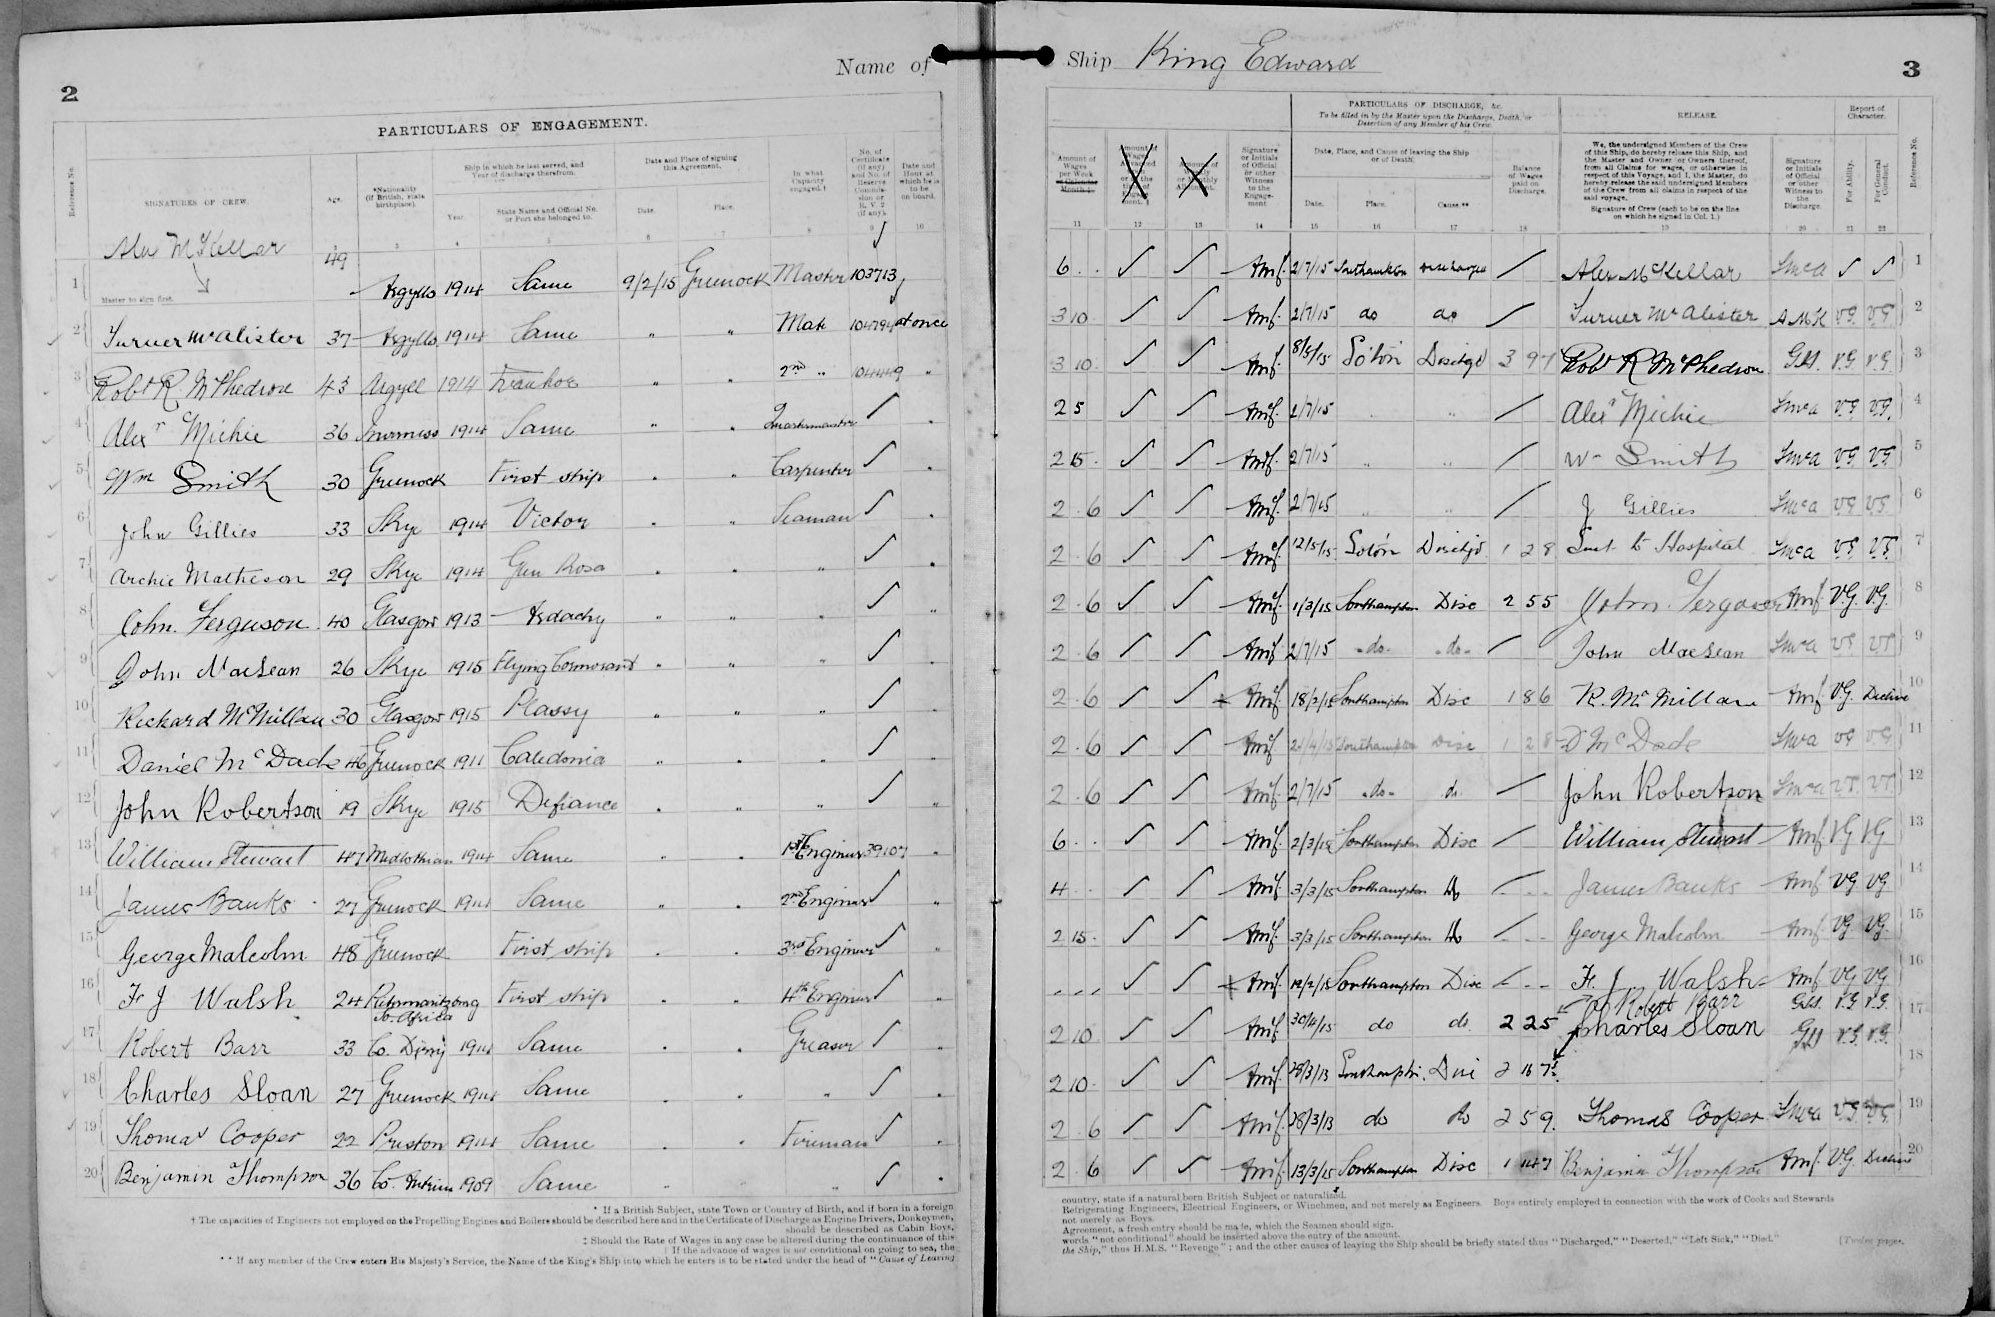 2
Name of
PARTICULARS OF ENGAGEMENT.
Reference No.
SIGNATURES OF CREW.
Age.
*Nationality (If British, state birthplace).
Ship in which he last served, and Year of discharge therefrom.
Year.
State Name and Official No. or Port she belonged to.
Date and Place of signing this Agreement.
Date.
Place.
In what Capacity engaged.†
No. of Certificate (if any) and No. of Reserve Commission or R. V. 2 (if any).
Date and Hour at which he is to be on board.
3 4 5 6 7 8 9 10
1 Alex McKellar 49 Argylls 1914 Same 9/2/15 Greenock Master 103713 ✓
Master to sign first.
2 Turner McAlister 37 Argylls 1914 Same " " Mate 104794 at once
3 Robt R McPhedron 43 Argyll 1914 Ivanhoe " " 2nd " 104449 "
4 Alexr Michie 36 Inverness 1914 Same " " Quartermaster ✓
5 Wm Smith 30 Greenock First ship " " Carpenter ✓
6 John Gillies 33 Skye 1914 Victor " " Seaman ✓
7 Archie Matheson 29 Skye 1914 Glen Rosa " " " ✓
8 John Ferguson 40 Glasgow 1913 Ardachy " " " ✓ "
9 John MacLean 26 Skye 1915 Flying Cormorant " " " ✓
10 Richard McMillan 30 Glasgow 1915 Plassy " " " ✓
11 Daniel McDade 46 Greenock 1911 Caledonia " " " ✓
12 John Robertson 19 Skye 1915 Defiance " " " ✓ "
13 William Stewart 47 Midlothian 1914 Same " " 1st Engineer 39107 "
14 James Banks 27 Greenock 1914 Same " " 2nd Engineer ✓ "
15 George Malcolm 48 Greenock First ship " " 3rd Engineer ✓ "
16 Fr J Walsh 24 Pietermaritzburg So. Africa First ship " " 4th Engineer ✓ "
17 Robert Barr 33 Co. Derry 1914 Same " " Greaser ✓ "
18 Charles Sloan 27 Greenock 1914 Same " " " ✓ "
19 Thomas Cooper 22 Preston 1914 Same " " Fireman ✓ "
20 Benjamin Thompson 36 Co. Antrim 1909 Same " " " ✓ "
* If a British Subject, state Town or Country of Birth, and if born in a foreign
† The capacities of Engineers not employed on the Propelling Engines and Boilers should be described here and in the Certificate of Discharge as Engine Drivers, Donkeymen,
should be described as Cabin Boys,
‡ Should the Rate of Wages in any case be altered during the continuance of this
If the advance of wages is not conditional on going to sea, the
** If any member of the Crew enters His Majesty's Service, the Name of the King's Ship into which he enters is to be stated under the head of "Cause of Leaving
Ship King Edward
3
Amount of Wages per Week or Calendar Month.
Signature or Initials of Official or other Witness to the Engagement
PARTICULARS OF DISCHARGE, &c.
To be filled in by the Master upon the Discharge, Death, or Desertion of any Member of his Crew.
Date, Place, and Cause of leaving the Ship or of Death.
Date.
Place.
Cause.**
Balance of Wages paid on Discharge.
RELEASE.
We, the undersigned Members of the Crew of this Ship, do hereby release this Ship, and the Master and Owner or Owners thereof, from all Claims for wages, or otherwise in respect of this Voyage, and I, the Master, do hereby release the said undersigned Members of the Crew from all claims in respect of the said voyage.
Signature of Crew (each to be on the line on which he signed in Col. 1.)
Signature or Initials of Official or other Witness to the Discharge.
Report of Character.
For Ability.
For General Conduct.
Reference No.
11 12 13 14 15 16 17 18 19 20 21 22
6 ✓ ✓ 2/7/15 Southampton Discharged / Alex McKellar ✓ ✓ 1
3 10 ✓ ✓ 2/7/15 do do / Turner McAlister A McK VG. VG. 2
3 10 ✓ ✓ 8/5/15 So'ton Dischgd 3 9 Robt R McPhedron V.G. V.G. 3
2 5 ✓ ✓ 2/7/15 " " / Alexr Michie V.G. V.G. 4
2 15 ✓ ✓ 2/7/15 " " / Wm Smith V.G V.G. 5
2 6 ✓ ✓ 2/7/15 " " / J Gillies VG V.G. 6
2 6 ✓ ✓ 12/5/15 So'ton Dischgd 1 2 8 Sent to Hospital V.G. V.G. 7
2 6 ✓ ✓ 1/3/15 Southampton Disc 2 5 5 John Ferguson V.G. V.G. 8
2 6 ✓ ✓ 2/7/15 -do- -do- / John MacLean VG VG 9
2 6 ✓ ✓ 18/2/15 Southampton Disc 1 8 6 R. McMillan V.G. Decline 10
2 6 ✓ ✓ Southampton Disc 1 2 8 D McDade VG VG 11
2 6 ✓ ✓ 2/7/15 -do- do / John Robertson V.G. V.G. 12
6 ✓ ✓ 2/3/15 Southampton Disc / William Stewart VG VG 13
4 ✓ ✓ 3/3/15 Southampton Do / James Banks VG VG 14
2 15 ✓ ✓ 3/3/15 Southampton Do / George Malcolm VG VG 15
✓ ✓ 12/2/15 Southampton Disc Fr J Walsh VG VG 16
Robert Barr V.G V.G.
2 10 ✓ ✓ 30/4/15 do do 2 2 5 Charles Sloan V.G. V.G. 17
2 10 ✓ ✓ 28/3/13 Southampton. Disc 2 16 7 18
2 6 ✓ ✓ 28/3/13 do do 2 5 9 Thomas Cooper V.G V.G. 19
2 6 ✓ ✓ 13/3/15 Southampton Disc 1 14 7 Benjamin Thompson V.G Decline 20
country, state if a natural born British Subject or naturalized.
Refrigerating Engineers, Electrical Engineers, or Winchmen, and not merely as Engineers. Boys entirely employed in connection with the work of Cooks and Stewards
not merely as Boys.
Agreement, a fresh entry should be made, which the Seamen should sign.
words "not conditional" should be inserted above the entry of the amount.
the Ship," thus H.M.S. "Revenge"; and the other causes of leaving the Ship should be briefly stated thus "Discharged," "Deserted," "Left Sick," "Died."
[Twelve pages.